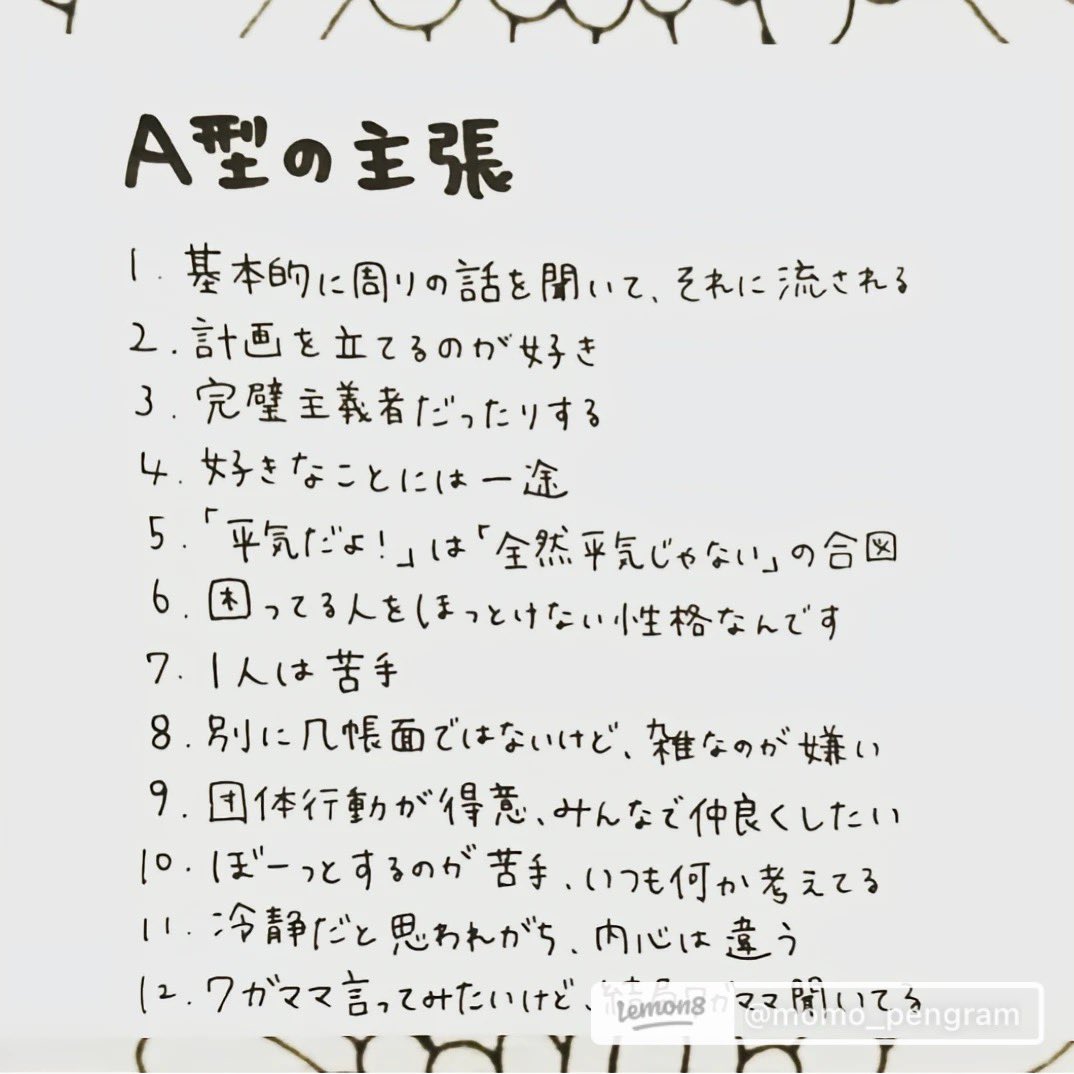 A型の主張
1. 基本的に周りの話を聞いて、それに流される
2. 計画を立てるのが好き
3. 完璧主義者だったりする
4. 好きなことには一途
5. 「平気だよ!」は「全然平気じゃない」の合図
6. 困ってる人をほっとけない性格なんです
7. 1人は苦手
8. 別に几帳面ではないけど、雑なのが嫌い
9. 団体行動が得意、みんなで仲良くしたい
10. ぼーっとするのが苦手、いつも何か考えてる
11. 冷静だと思われがち、内心は違う
12. ワガママ言ってみたいけど、結局ワガママ聞いてる
Lemon8 @momo_pengram